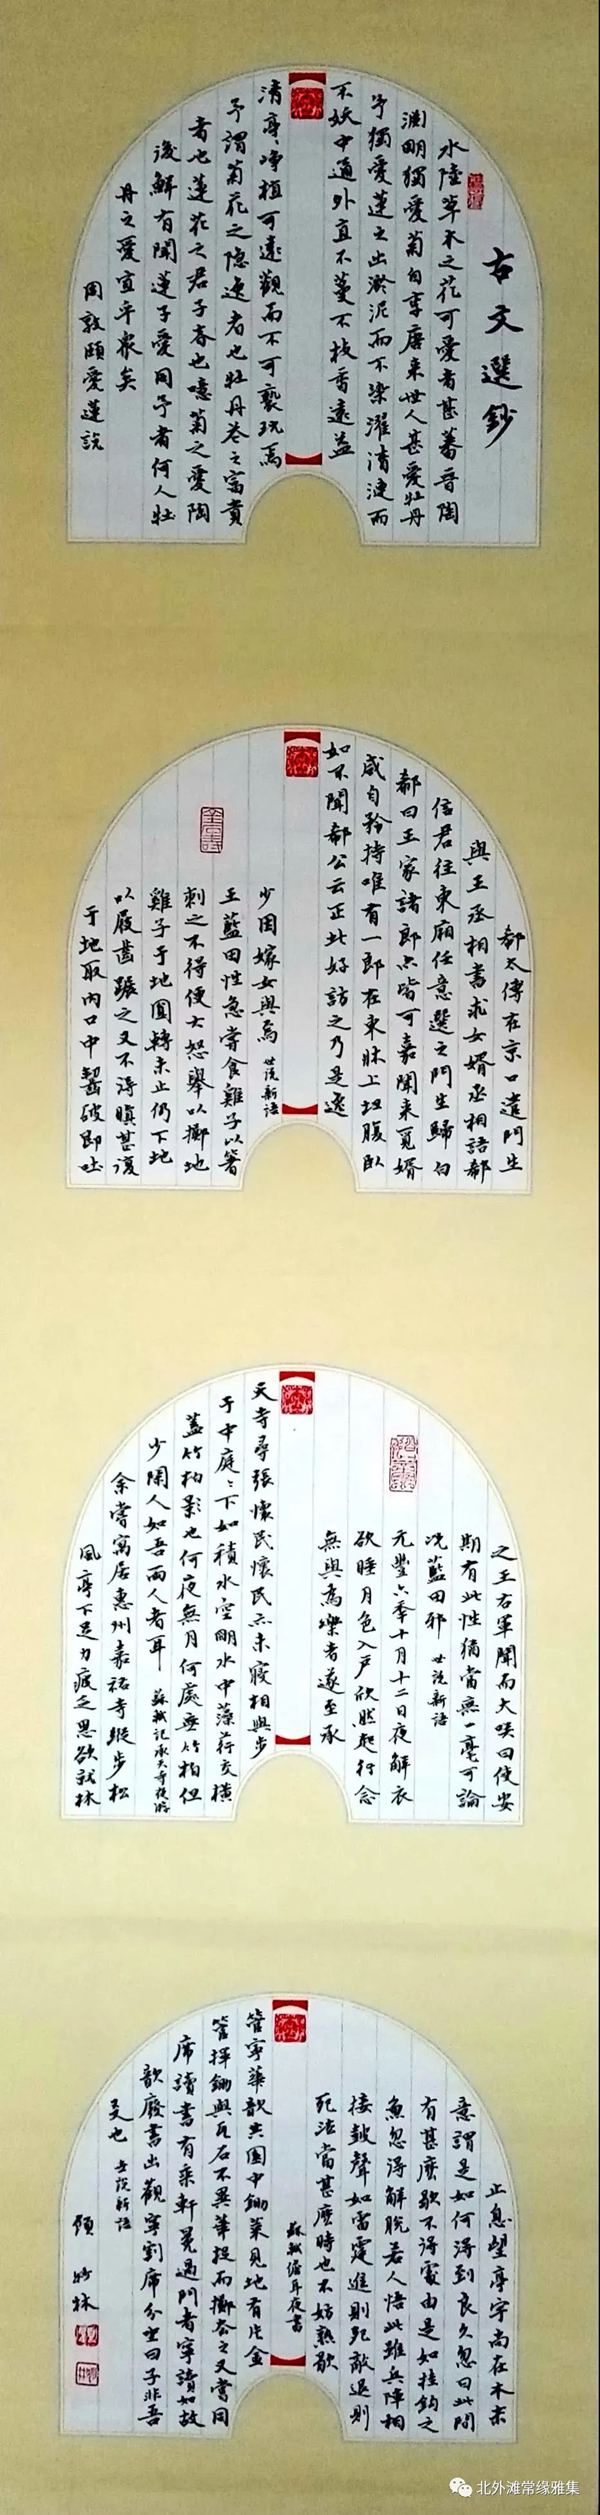 古文選鈔
水陸草木之花可愛者甚蕃晉陶
淵明獨愛菊自李唐來世人甚愛牡丹
予獨愛蓮之出淤泥而不染濯清漣而
不妖中通外直不蔓不枝香遠益
清亭〻淨植可遠觀而不可褻玩焉
予謂菊花之隐逸者也牡丹花之富貴
者也蓮花之君子者也噫菊之愛陶
後鮮有聞蓮之愛同予者何人牡
丹之愛宜乎衆矣
周敦頤愛蓮説
郗太傅在京口遣門生
與王丞相書求女婿丞相語郗
信君往東廂任意選之門生歸白
郗曰王家諸郎亦皆可嘉聞來覓婿
咸自矜持唯有一郎在東牀上坦腹臥
如不聞郗公云正此好訪之乃是逸
少因嫁女與焉 世說新語
王藍田性急嘗食雞子以箸
刺之不得便大怒舉以擲地
雞子于地圓轉未止仍下地
以屐齒蹍之又不得瞋甚復
于地取內口中齧破即吐
之王右軍聞而大咲曰使安
期有此性猶當無一毫可論
况藍田邪 世說新語
元豐六年十月十二日夜解衣
欲睡月色入戶欣然起行念
無與為樂者遂至承
天寺尋張懷民懷民亦未寢相與步
于中庭〻下如積水空明水中藻荇交横
蓋竹柏影也何夜無月何處無竹柏但
少閑人如吾兩人者耳 蘇軾記承天寺夜游
余嘗寓居惠州嘉祐寺縱步松
風亭下足力疲乏思欲就林
止息望亭宇尚在木末
意謂是如何得到良久忽曰此間
有甚麽歇不得處由是如挂鈎之
魚忽得解脱若人悟此雖兵陣相
接鼓聲如雷霆進則死敵退則
死法當甚麽時也不妨熟歇
蘇軾儋耳夜書
管寧華歆共園中鋤菜見地有片金
管揮鋤與瓦石不異華捉而擲去之又嘗同
席讀書有乘軒冕過門者寧讀如故
歆廢書出觀寧割席分坐曰子非吾
友也 世說新語
北外滩常缘雅集